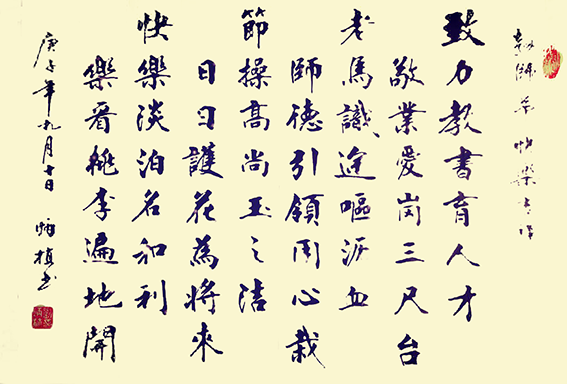 快樂
致力教書育人才
敬業愛崗三尺台
老馬識途嘔沥血
師德引領用心栽
節操高尚玉之洁
日日護花為將來
快樂淡泊名和利
樂看桃李遍地開
庚子年九月十日 炳植书